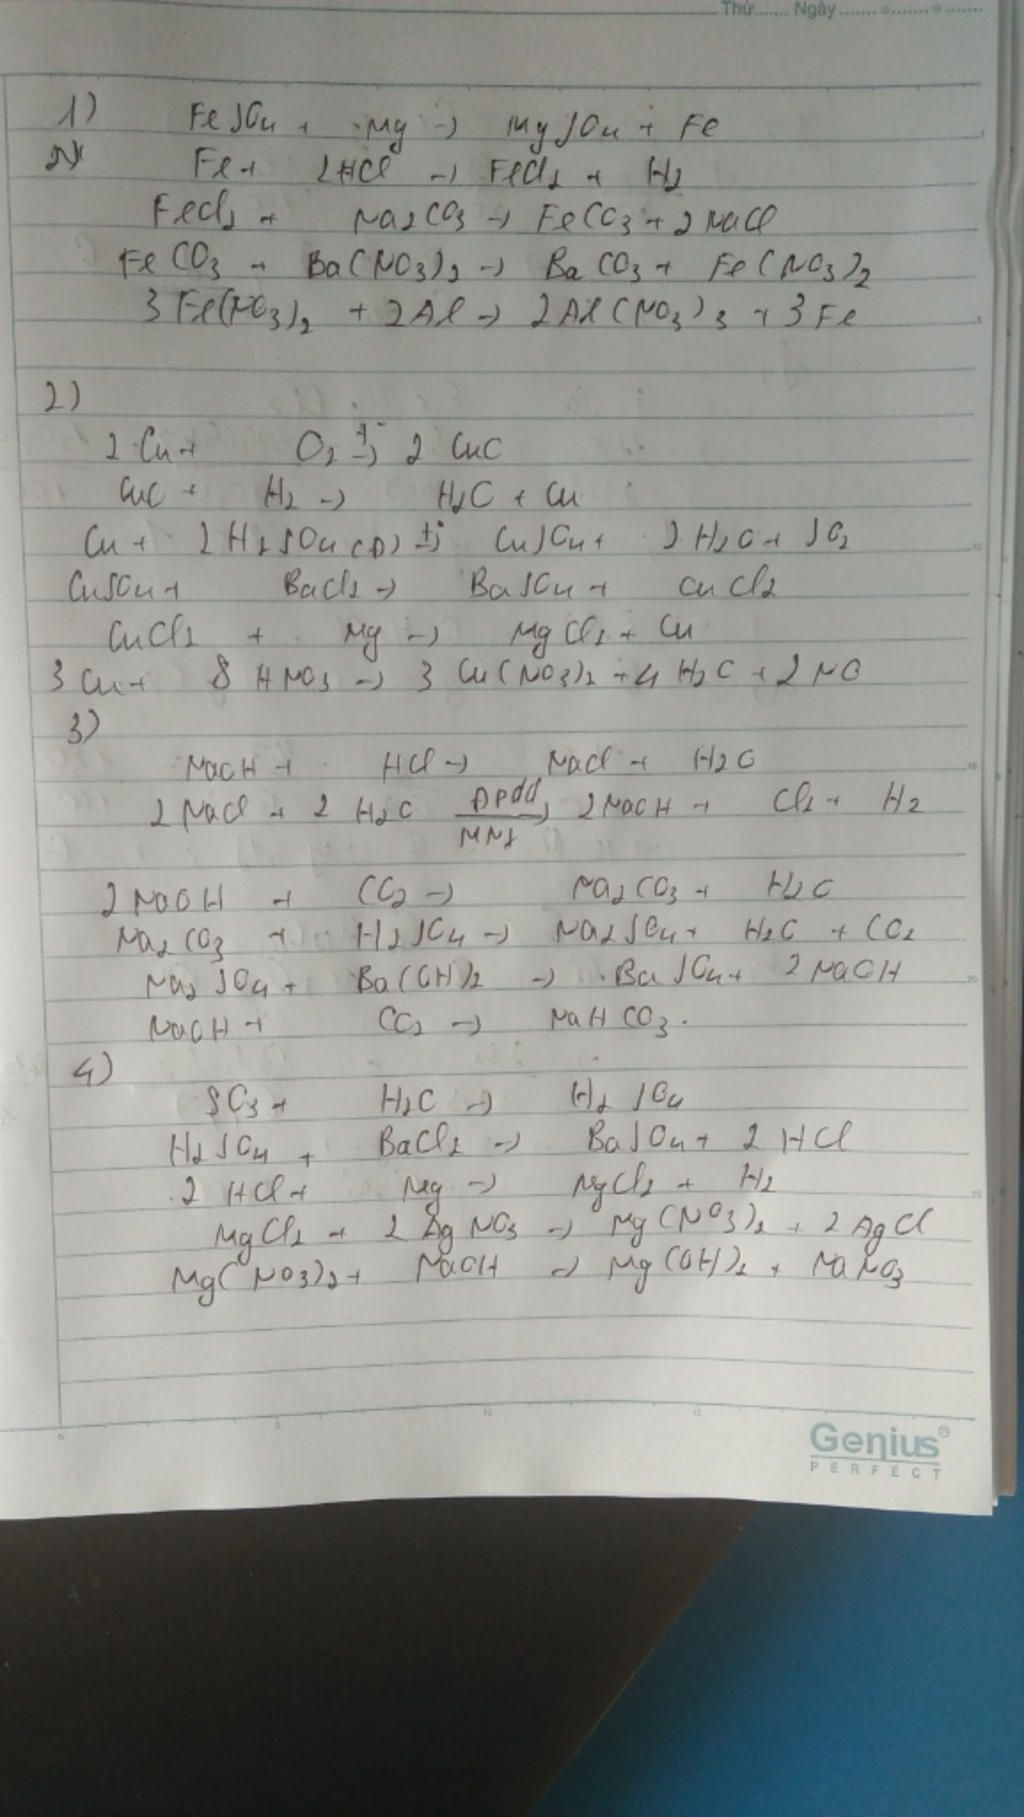 Thứ....... Ngày.......
1) FeSO4 + Mg → MgSO4 + Fe
Fe + 2HCl → FeCl2 + H2
FeCl2 + Na2CO3 → FeCO3 + 2NaCl
FeCO3 + Ba(NO3)2 → BaCO3 + Fe(NO3)2
3Fe(NO3)2 + 2Al → 2Al(NO3)3 + 3Fe
2)
2Cu + O2 t°→ 2CuO
CuO + H2 → H2O + Cu
Cu + 2H2SO4(Đ) t°→ CuSO4 + 2H2O + SO2
CuSO4 + BaCl2 → BaSO4 + CuCl2
CuCl2 + Mg → MgCl2 + Cu
3Cu + 8HNO3 → 3Cu(NO3)2 + 4H2O + 2NO
3)
NaOH + HCl → NaCl + H2O
2NaCl + 2H2O đpdd→ 2NaOH + Cl2 + H2
2NaOH + CO2 → Na2CO3 + H2O
Na2CO3 + H2SO4 → Na2SO4 + H2O + CO2
Na2SO4 + Ba(OH)2 → BaSO4 + 2NaOH
NaOH + CO2 → NaHCO3.
4)
SO3 + H2O → H2SO4
H2SO4 + BaCl2 → BaSO4 + 2HCl
2HCl + Mg → MgCl2 + H2
MgCl2 + 2AgNO3 → Mg(NO3)2 + 2AgCl
Mg(NO3)2 + NaOH → Mg(OH)2 + NaNO3
Genius
PERFECT